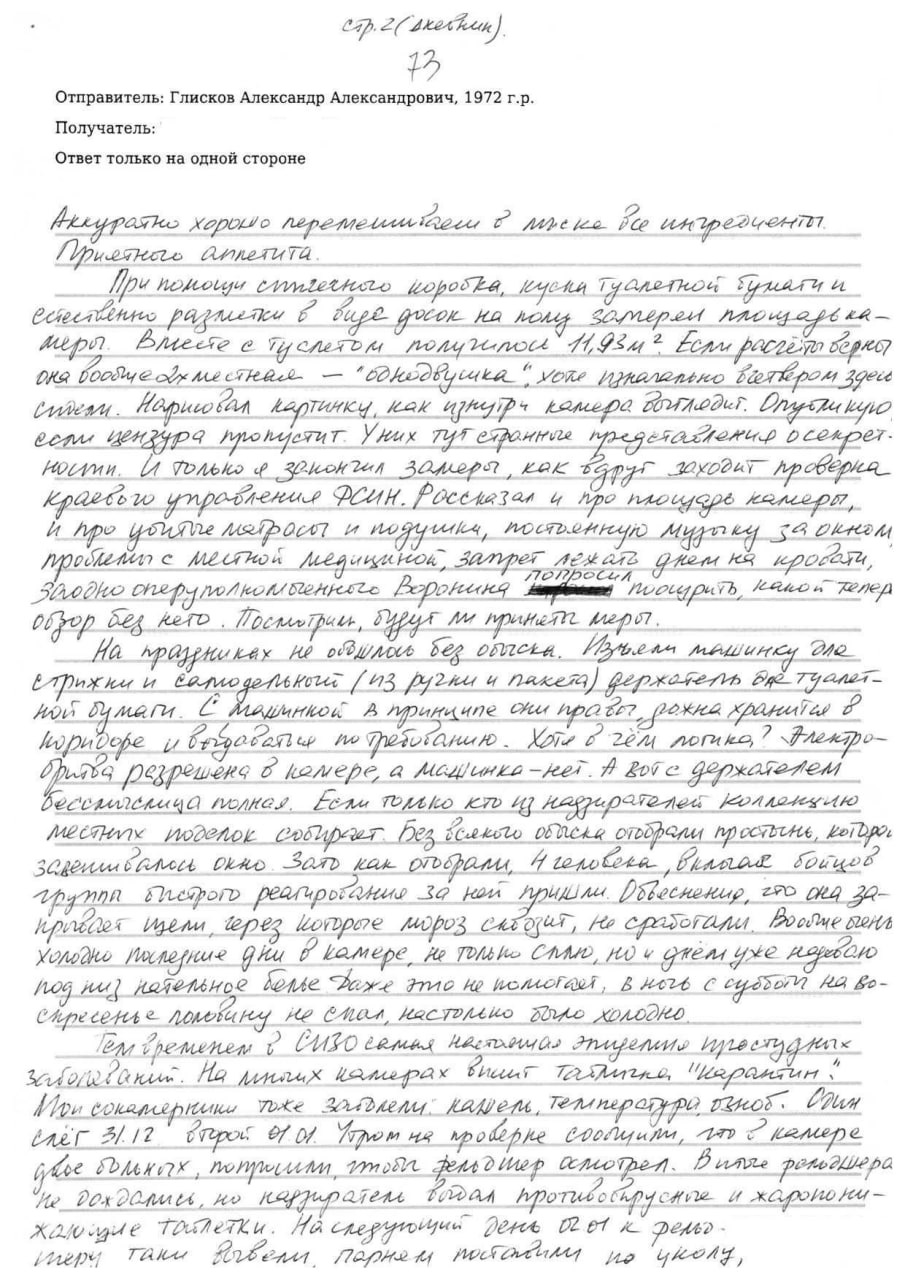 стр. 2 (дневник).
73
Отправитель: Глисков Александр Александрович, 1972 г.р.
Получатель:
Ответ только на одной стороне
Аккуратно хорошо перемешиваем в миске все ингредиенты.
Приятного аппетита.
При помощи спичечного коробка, куска туалетной бумаги и
естественно разметки в виде досок на полу замерен площадь ка-
меры. Вместе с туалетом получилось 11,93 м². Если расчёты верны
она вообще 2х местная – "однодвушка", хотя изначально вчетвером здесь
сидели. Нарисовал картинку, как изнутри камера выглядит. Опубликую,
если цензура пропустит. У них тут странные представления о секрет-
ности. И только я закончил замеры, как вдруг заходит проверка
краевого управления ФСИН. Рассказал и про площадь камеры,
и про убитые матрасы и подушки, постоянную музыку за окном,
проблемы с местной медициной, запрет лежать днем на кровати,
заодно оперуполномоченного Воронина попросил пошурить, какой тепер
обзор без него. Посмотрим, будут ли приняты меры.
На праздниках не обошлось без обыска. Изъяли машинку для
стрижки и самодельный (из ручки и пакета) держатель для туалет-
ной бумаги. С машинкой в принципе они правы, должна хранится в
коридоре и выдаваться по требованию. Хотя в чём логика? Электро-
бритва разрешена в камере, а машинка – нет. А вот с держателем
бессмыслица полная. Если только кто из надзирателей коллекцию
местных поделок собирает. Без всякого обыска отобрали простынь, которой
завешивалось окно. Зато как отобрали, 4 человека, включая бойцов
группы быстрого реагирования за ней пришли. Объяснение, что она за-
крывает щели, через которые мороз сквозит, не сработали. Вообще очень
холодно последние дни в камере, не только сплю, но и днём уже надеваю
под низ нательное белье. Даже это не помогает, в ночь с субботы на во-
скресенье половину не спал, настолько было холодно.
Тем временем в СИЗО самая настоящая эпидемия простудных
заболеваний. На многих камерах висит табличка "Карантин".
Мои сокамерники тоже заболели: кашель, температура, озноб. Один
слёг 31.12 второй 01.01. Утром на проверке сообщили, что в камере
двое больных, попросили, чтобы фельдшер осмотрел. В итоге фельдшера
не дождались, но надзиратель выдал противовирусные и жаропони-
жающие таблетки. На следующий день 02.01 к фельд-
шеру таки вывели, парням поставили по уколу,